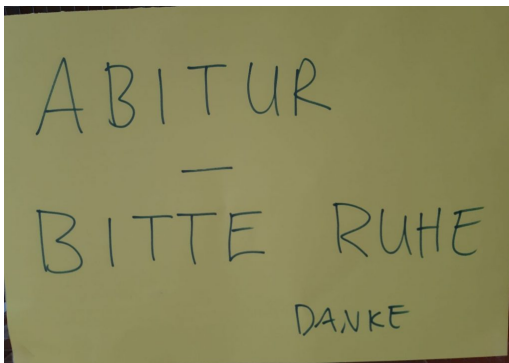 ABITUR
—
BITTE RUHE
DANKE